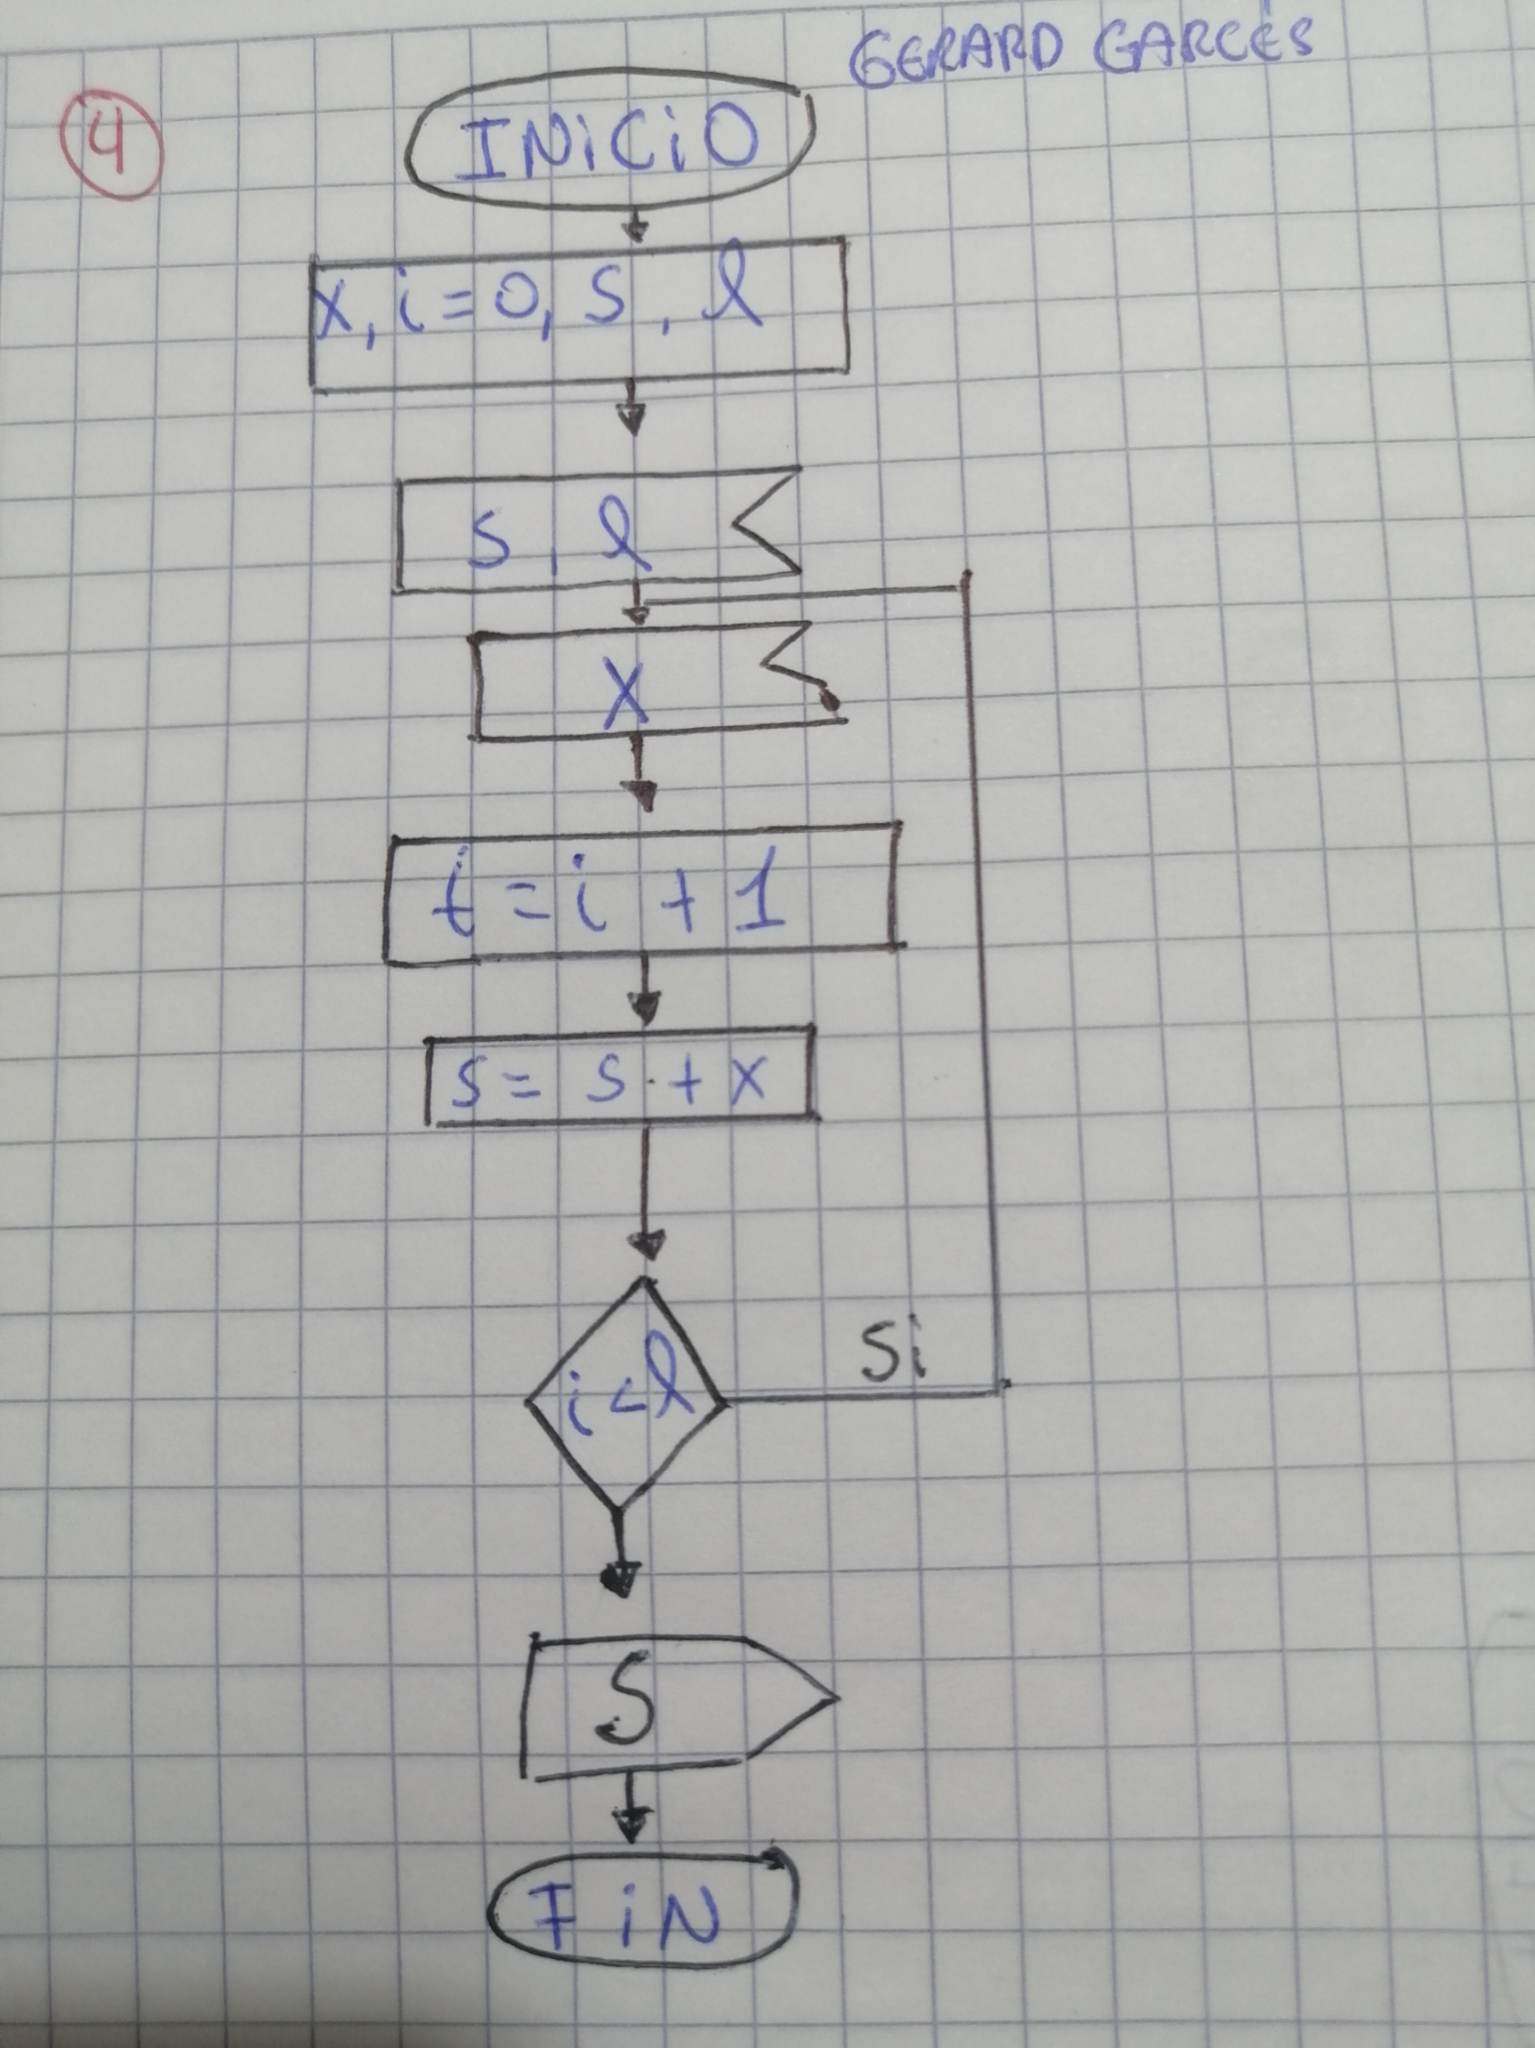 GERARD GARCÉS
4
INiCiO
x, i = 0, s, l
s, l
X
i = i + 1
s = s + x
i < l
Si
S
FiN